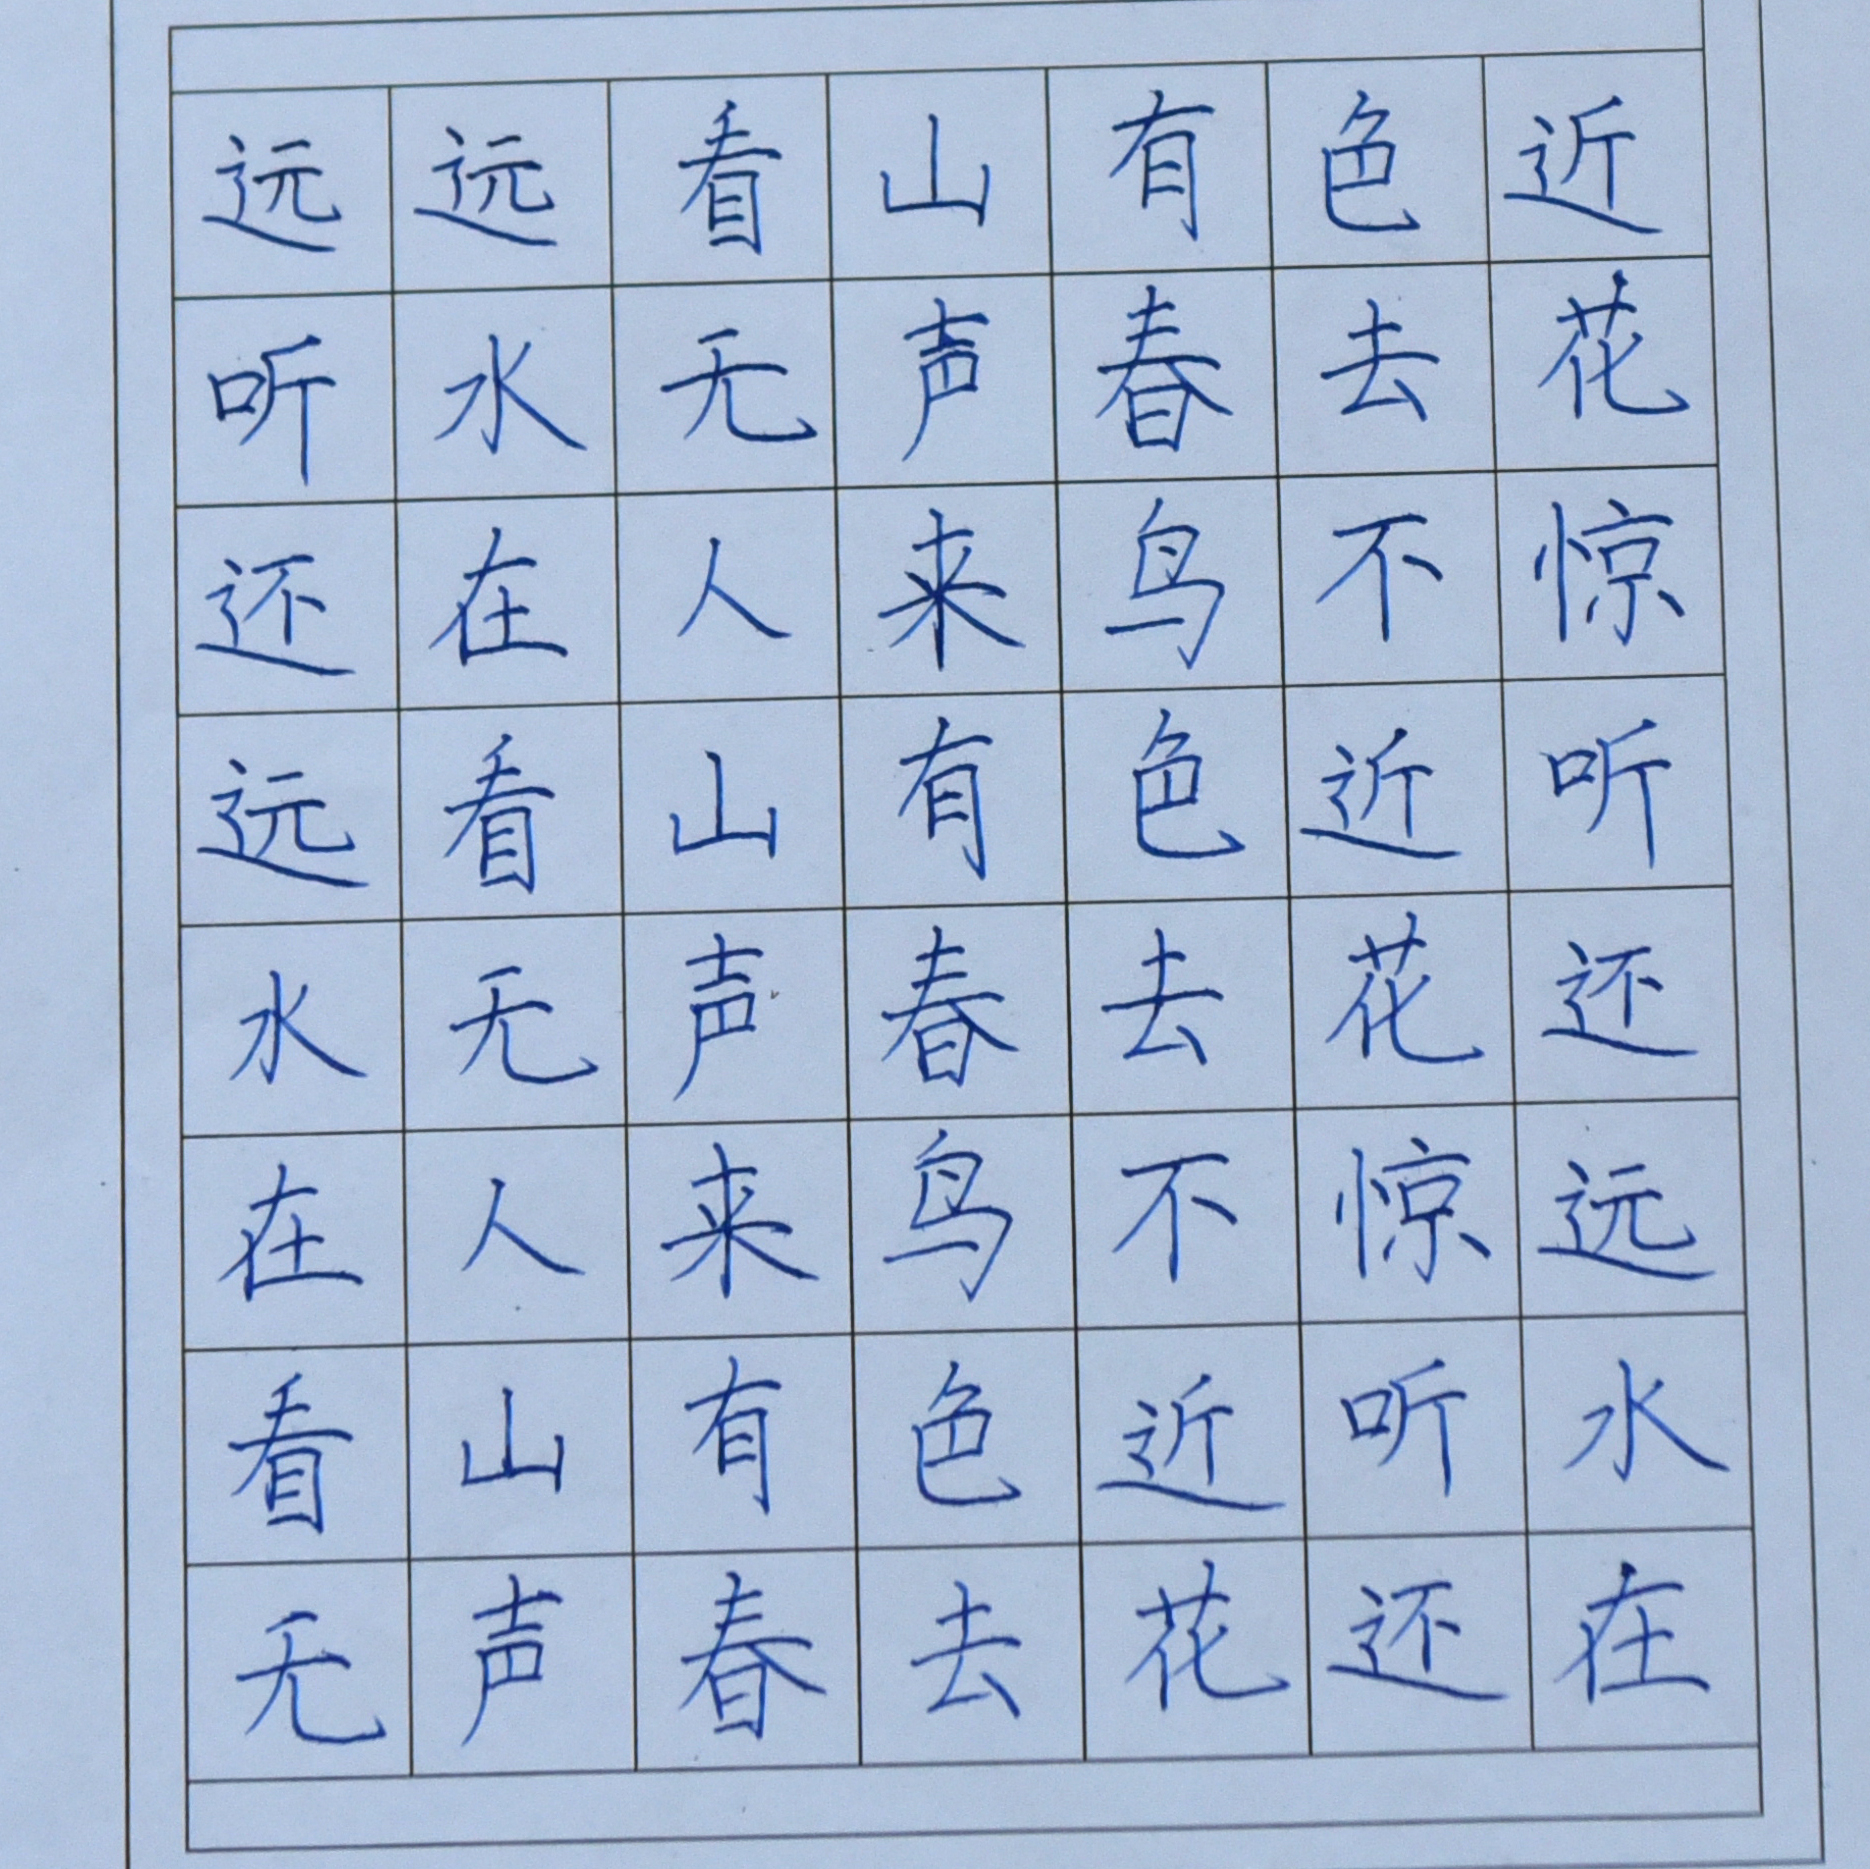 远远看山有色近
听水无声春去花
还在人来鸟不惊
远看山有色近听
水无声春去花还
在人来鸟不惊远
看山有色近听水
无声春去花还在